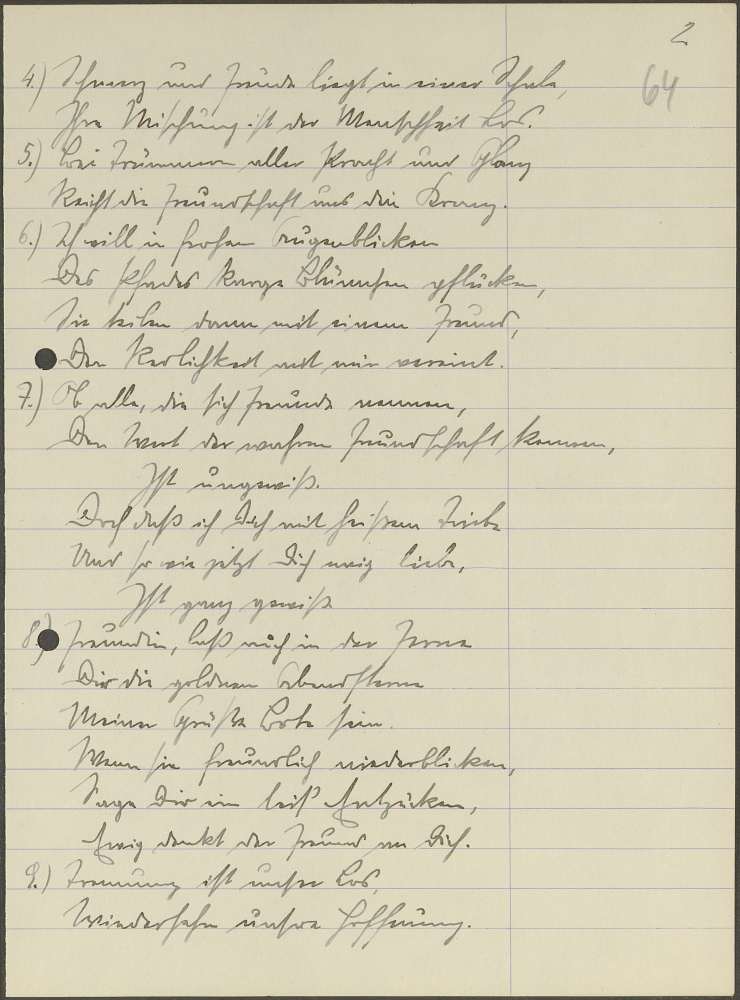 2
64
4.) Schmerz und Freude liegt in einer Schale,
Ihre Mischung ist der Menschheit Los.
5.) Bei Trümmern aller Pracht und Glanz
Reicht die Freundschaft uns den Kranz.
6.) Ich will in frohen Augenblicken
Des Pfades karge Blümchen pflücken,
Sie teilen dann mit einem Freund,
Den Redlichkeit mit mir vereint.
7.) Ob alle, die sich Freunde nennen,
Den Wert der wahren Freundschaft kennen,
Ist ungewiß.
Doch daß ich Dich mit heißem Triebe
Und so wie jetzt Dich ewig liebe,
Ist ganz gewiß
8.) Freundin, laß auch in der Ferne
Dir die goldnen Abendsterne
Meiner Grüße Bote sein.
Wenn sie freundlich niederblicken,
Sage Dir ein leis' Entzücken,
Ewig denkt der Freund an Dich.
9.) Trennung ist unser Los,
Wiedersehn unsre Hoffnung.